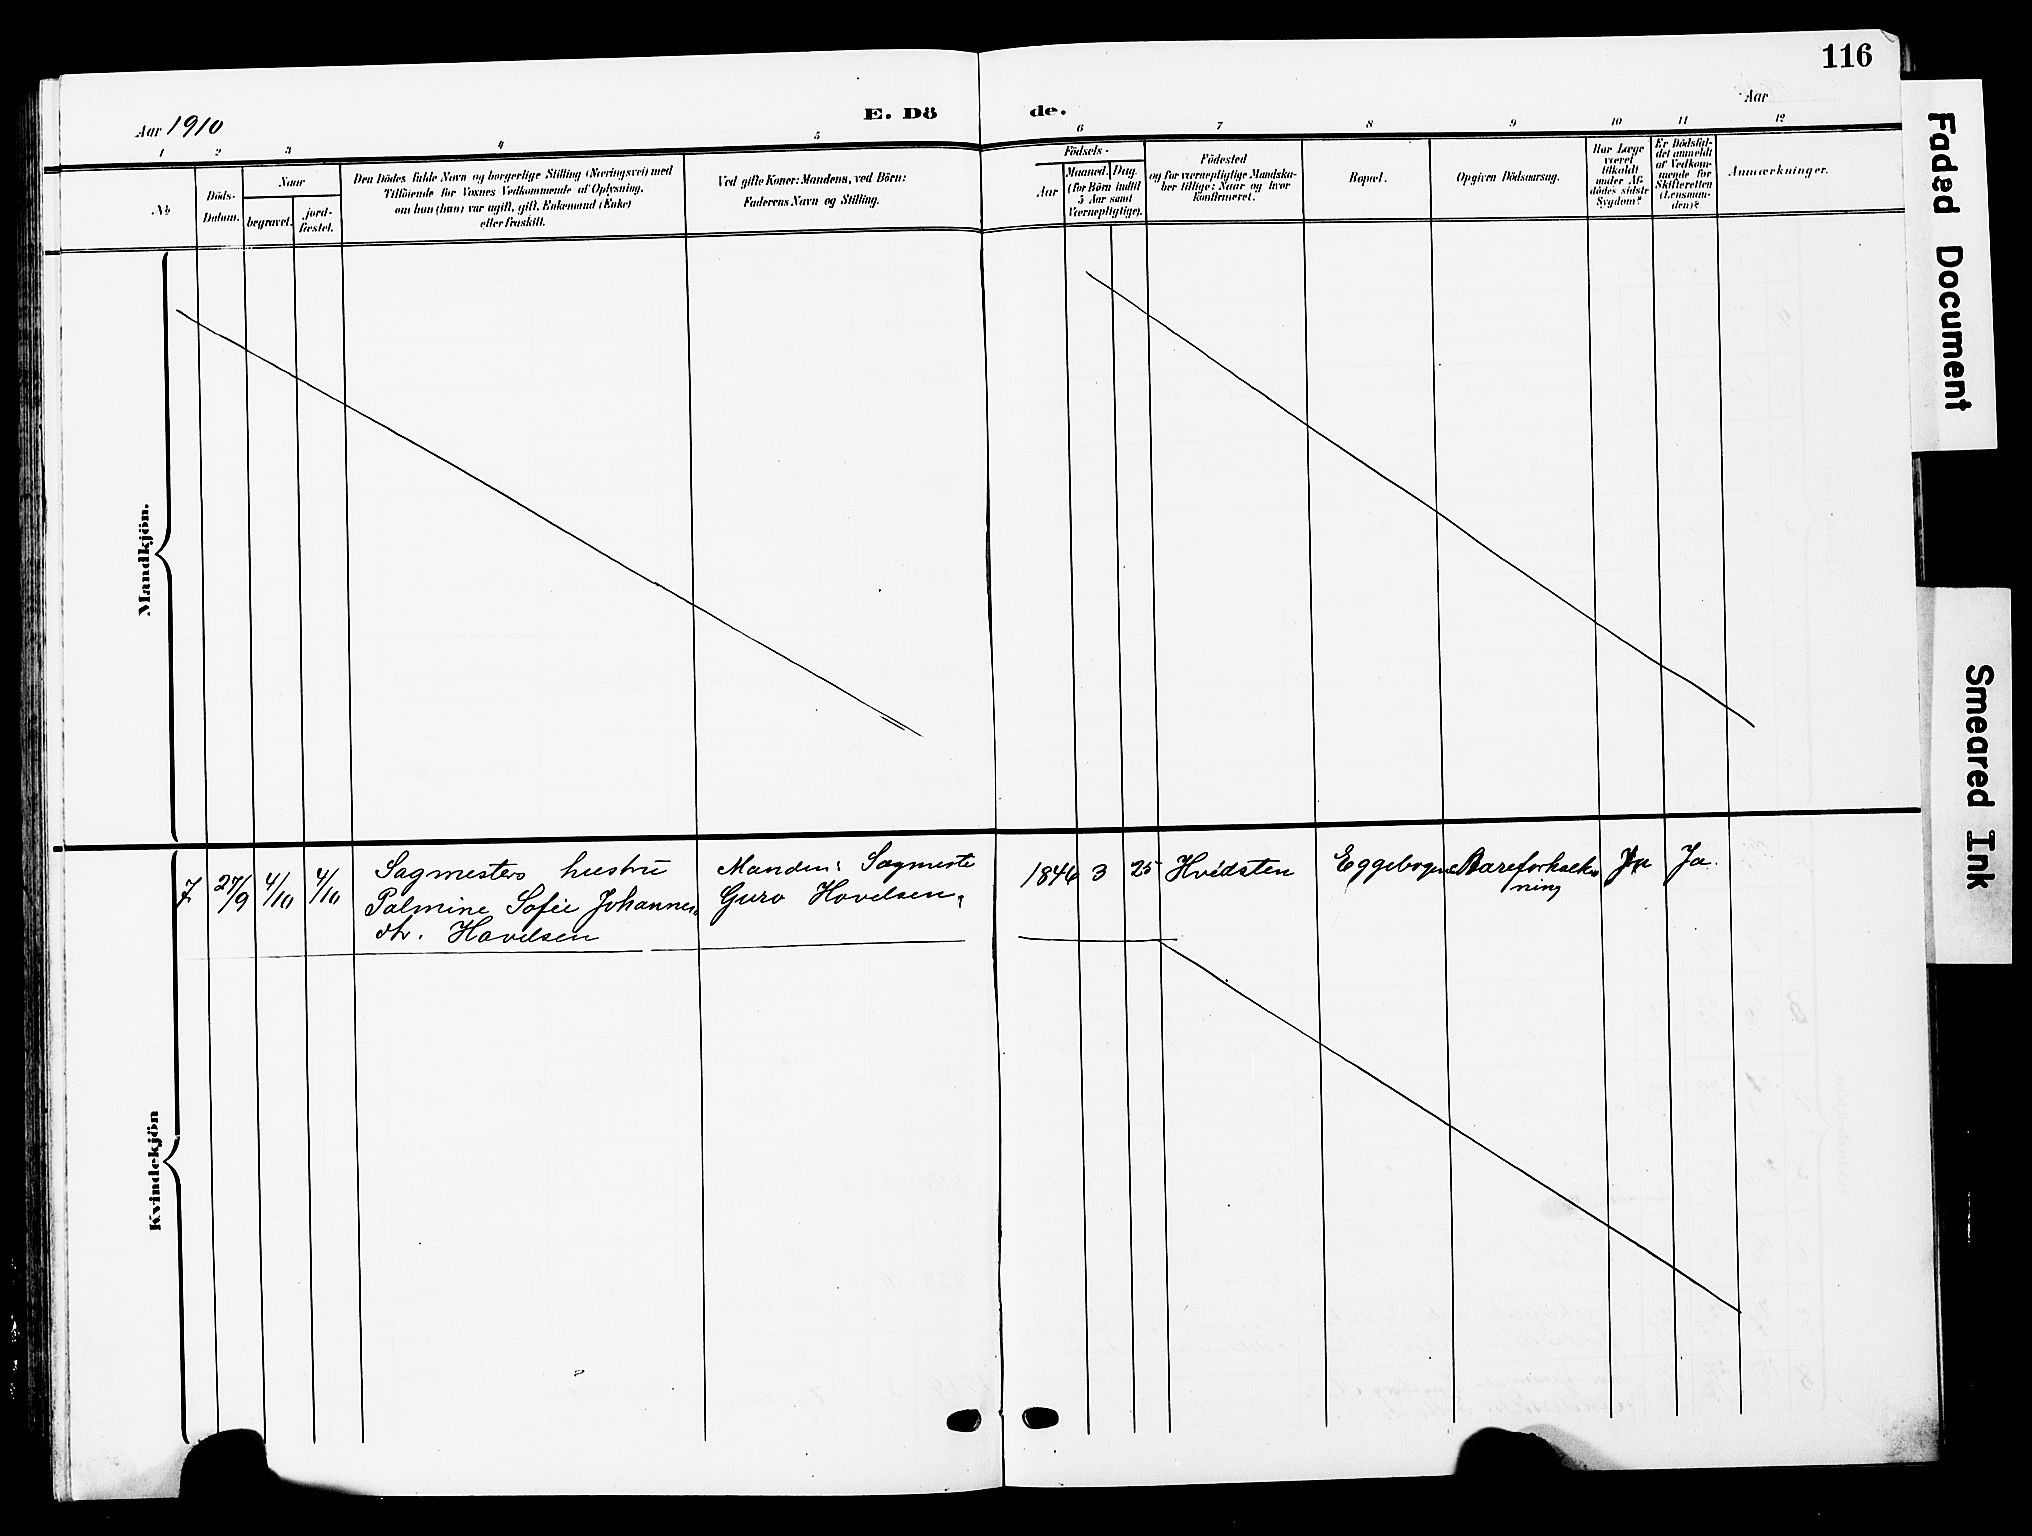 116
Aar 1910
E. Dö
de.
Aar
1 2 3 4 5 6 7 8 9 10 11 12
No
Döds-
Datum.
Naar
begravet.
jord-
fæstet.
Den Dödes fulde Navn og borgerlige Stilling (Næringsvei) med
Tilföiende for Voxnes Vedkommende af Oplysning,
om han (hun) var ugift, gift, Enkemand (Enke)
eller fraskilt.
Ved gifte Koner: Mandens, ved Börn:
Faderens Navn og Stilling.
Födsels-
Aar
Maaned. Dag.
(for Börn indtil
5 Aar samt
Værnepligtige).
Födested
og for værnepligtige Mandska-
ber tillige: Naar og hvor
konfirmeret.
Bopæl.
Opgiven Dödsaarsag.
Har Læge
været
tilkaldt
under Af-
dödes sidste
Sygdom?
Er Dödsfal-
det anmeldt
af Vedkom-
mende for
Skifteretten
(Lensman-
den)?
Anmærkninger.
Mandkjön.
Kvindekjön
7 27/9 4/10 4/10
Sagmesters hustru
Palmine Sofie Johannes
dtr. Hovelsen
Manden: Sagmester
Guro Hovelsen.
1846 3 25 Hvidsten
Eggebogen
Aareforkalk
ning
Ja
Ja.
Faded Document
Smeared Ink